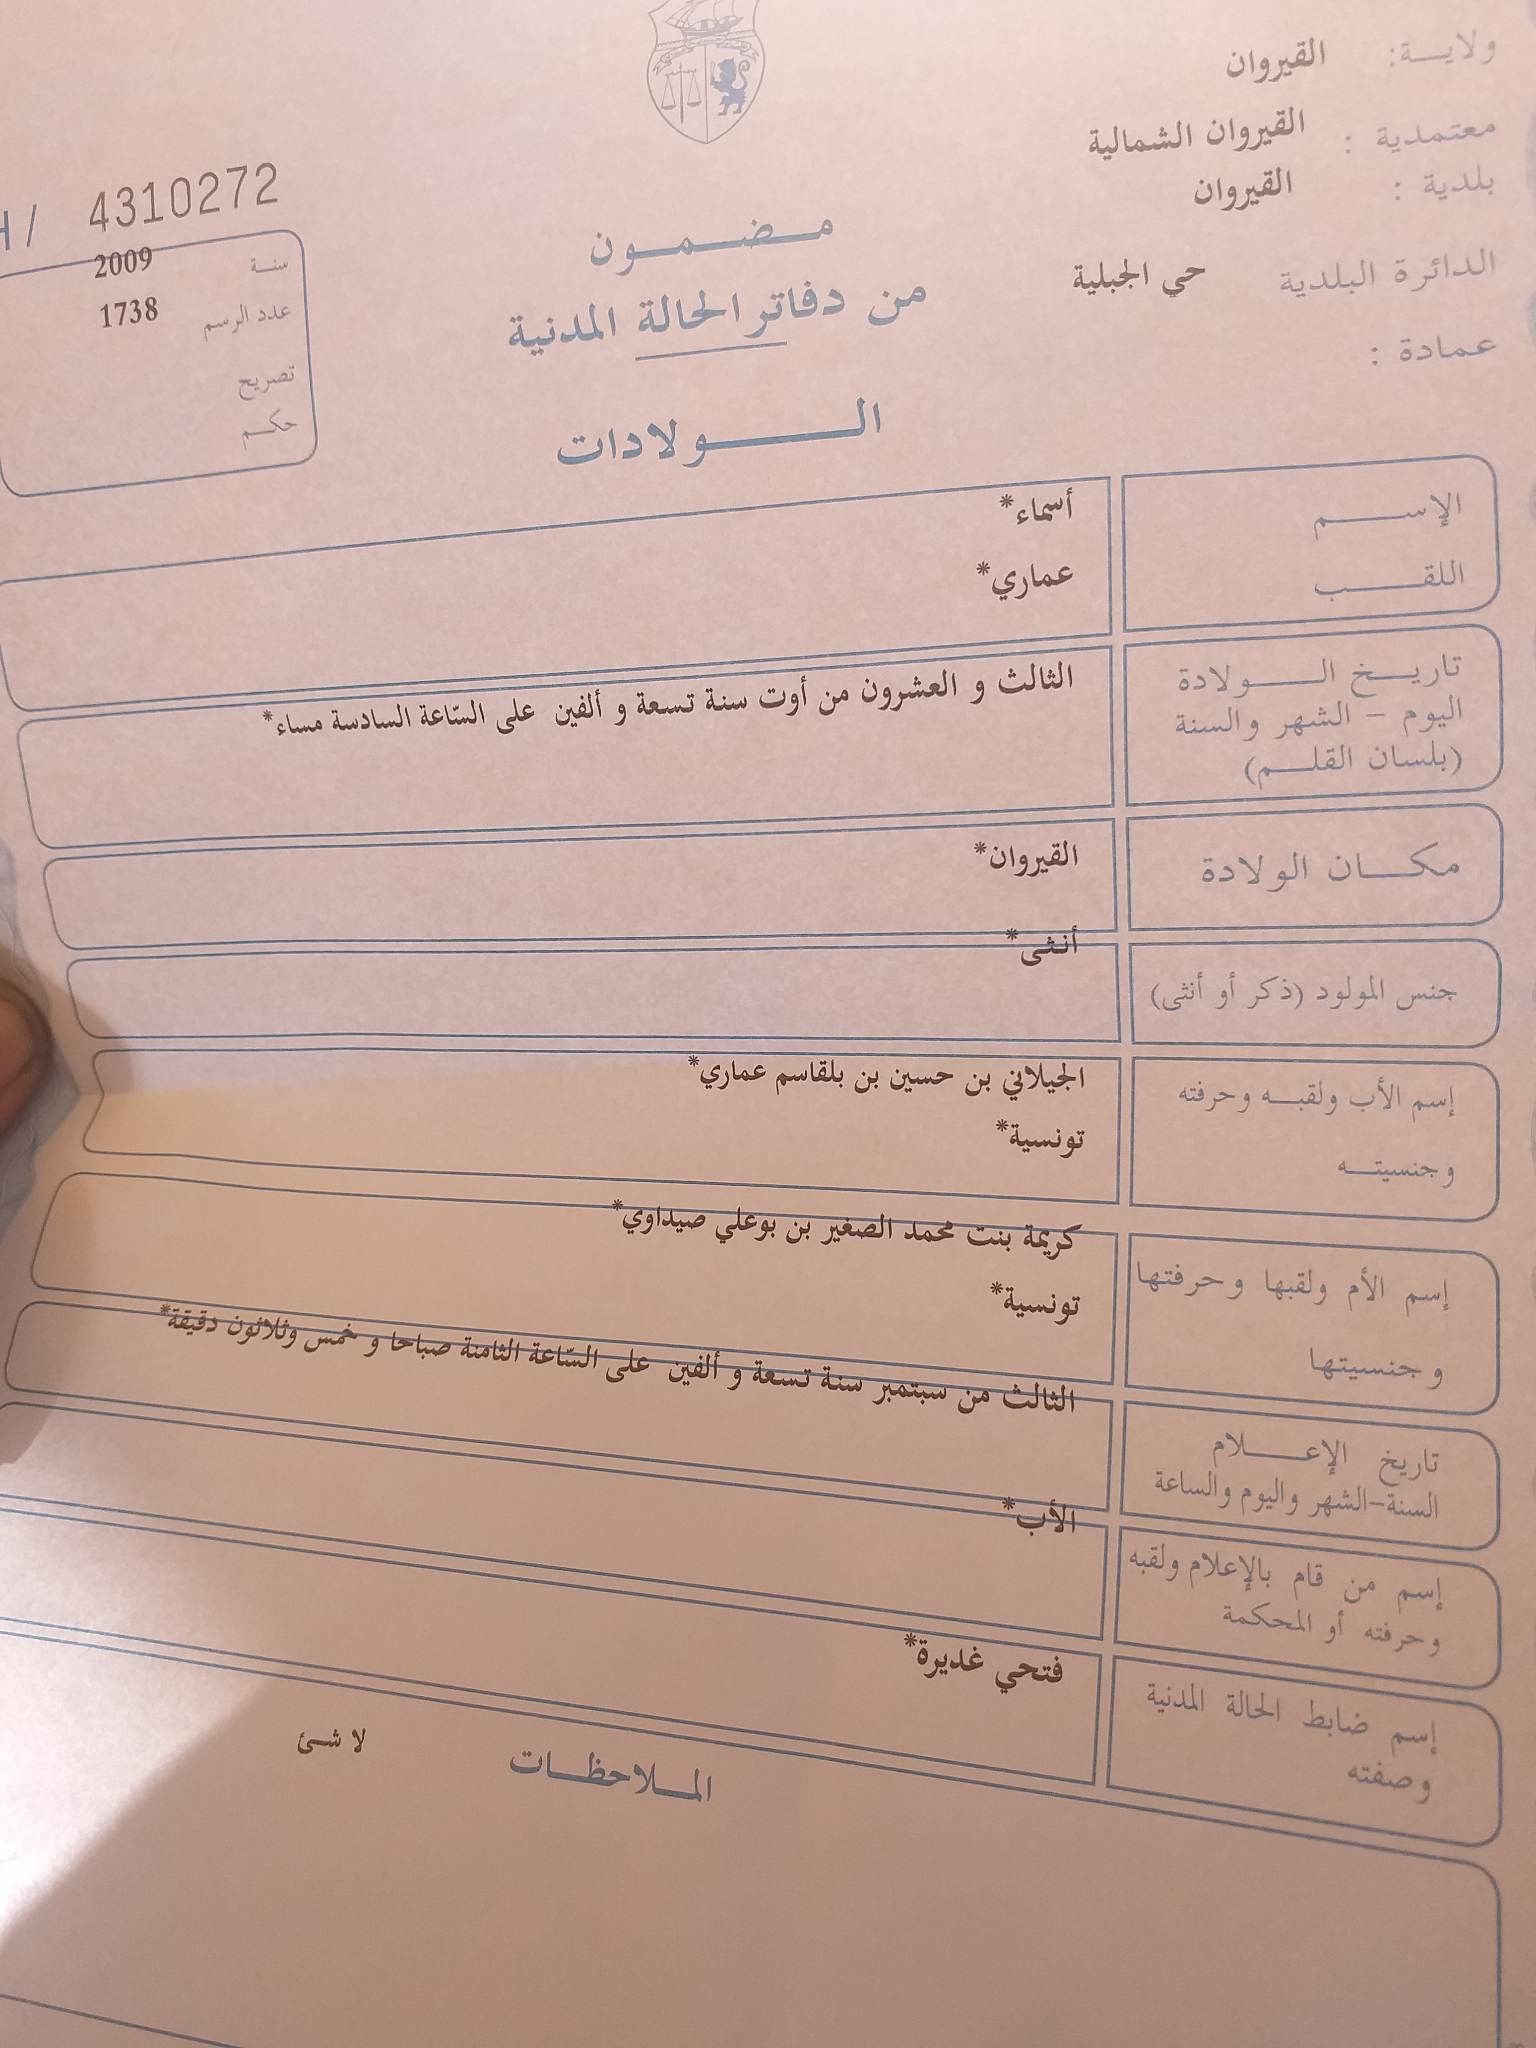 ولايـــة: القيروان
معتمدية : القيروان الشمالية
بلدية : القيروان
الدائرة البلدية حي الجبلية
عمادة :
/ 4310272
سنـة 2009
عدد الرسم 1738
تصريح
حكـم
مـضـمـون
من دفاتر الحالة المدنية
الـــولادات
الإســـم أسماء*
اللقـــب عماري*
تاريــخ الـــولادة الثالث و العشرون من أوت سنة تسعة و ألفين على السّاعة السادسة مساء*
اليوم - الشهر والسنة
(بلسان القلـــم)
مكـــان الولادة القيروان*
جنس المولود (ذكر أو أنثى) أنثى*
إسم الأب ولقبـــه وحرفته الجيلاني بن حسين بن بلقاسم عماري*
وجنسيتـــه تونسية*
إسم الأم ولقبها وحرفتها كريمة بنت محمد الصغير بن بوعلي صيداوي*
وجنسيتها تونسية*
تاريخ الإعـــلام الثالث من سبتمبر سنة تسعة و ألفين على السّاعة الثامنة صباحا و خمس وثلاثون دقيقة*
السنة-الشهر واليوم والساعة
إسم من قام بالإعلام ولقبه الأب*
وحرفته أو المحكمة
إسم ضابط الحالة المدنية فتحي غديرة*
وصفته
المـلاحظـات لا شئ